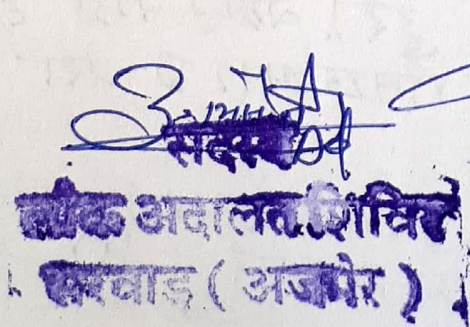 सदस्य
लोक अदालत शिविर
सरवाड़ ( अजमेर )